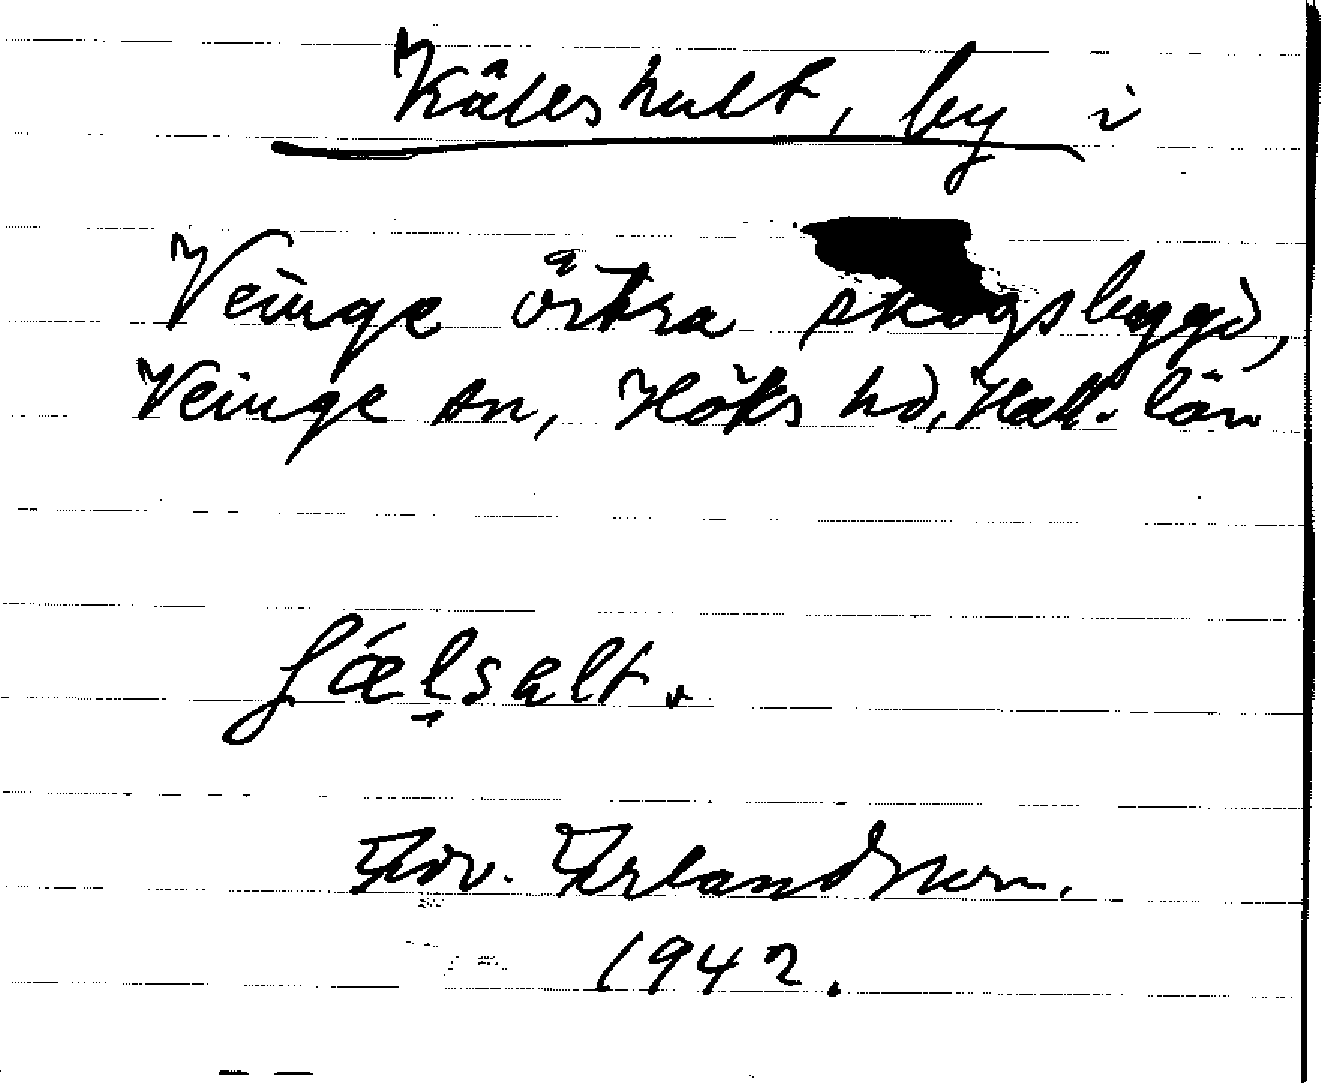 Kåleshult, by i
Veinge östra skogsbygd,
Veinge sn, Höks hd, Hall. län
Edv. Erlandsson.
1942.